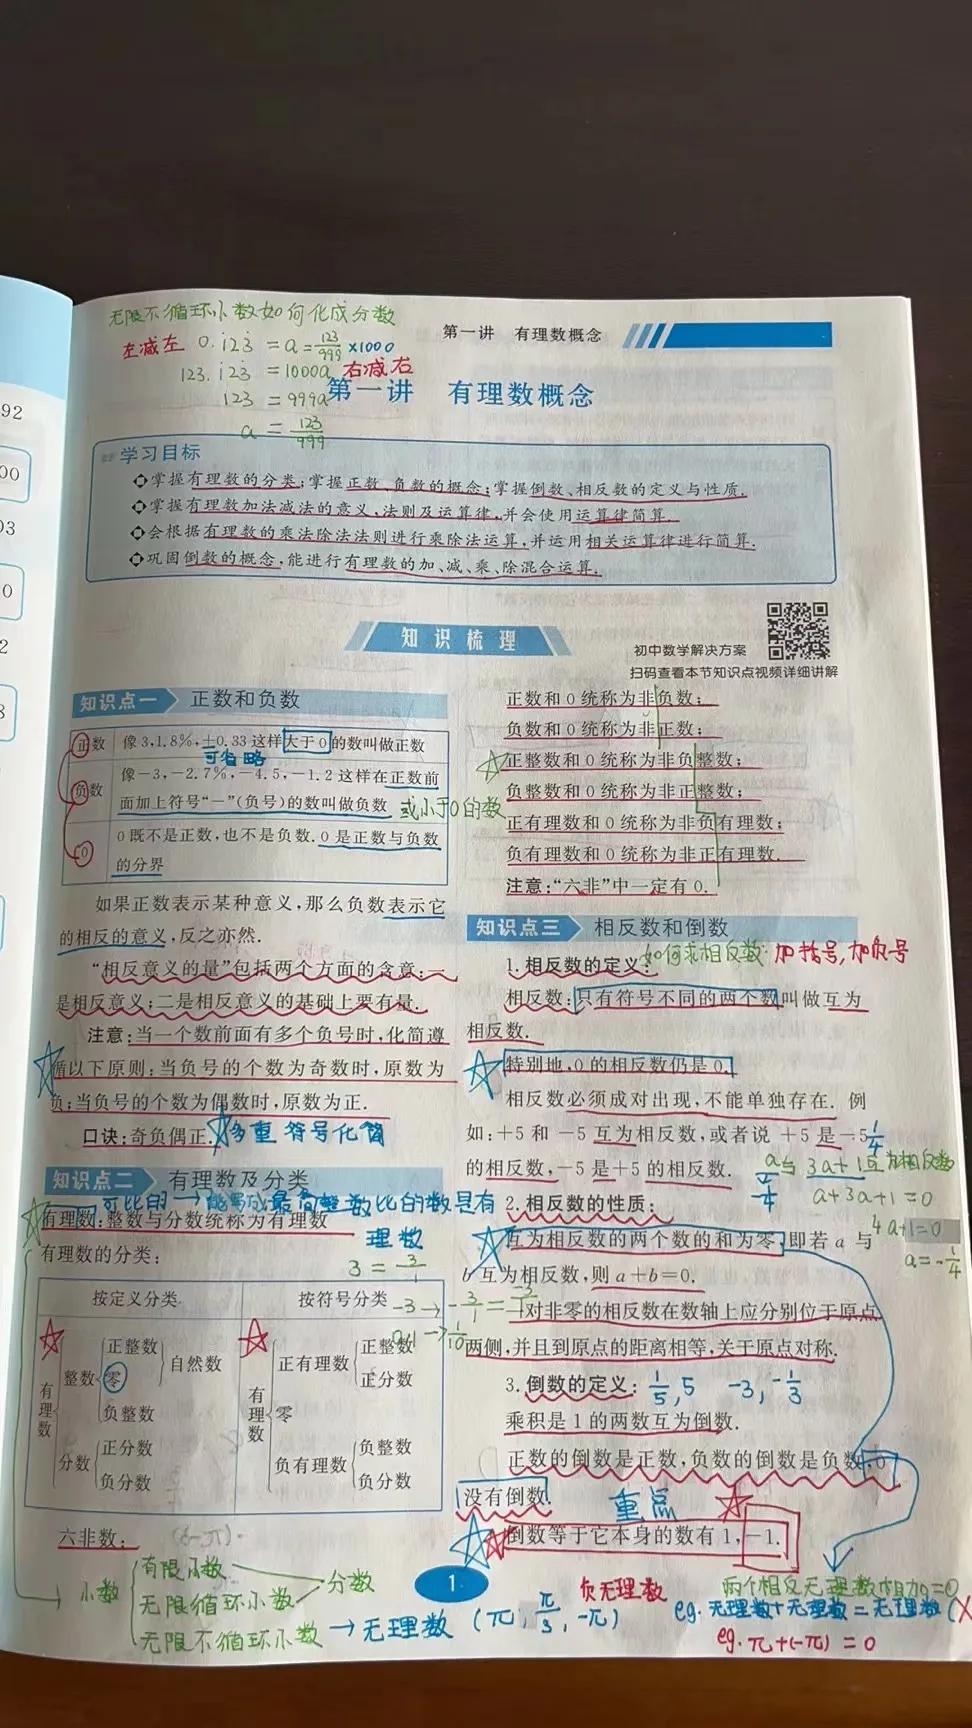 无限不循环小数如何化成分数
第一讲 有理数概念
左减左 0.i23̇ = a = 123/999 ×1000
123.i23̇ = 1000a 右减右
第一讲 有理数概念
123 = 999a
a = 123/999
学习目标
掌握有理数的分类;掌握正数、负数的概念;掌握倒数、相反数的定义与性质.
掌握有理数加法减法的意义,法则及运算律,并会使用运算律简算.
会根据有理数的乘法除法法则进行乘除法运算,并运用相关运算律进行简算.
巩固倒数的概念,能进行有理数的加、减、乘、除混合运算.
知识梳理
初中数学解决方案
扫码查看本节知识点视频详细讲解
知识点一 正数和负数
正数 像3,1.8%,+0.33这样大于0的数叫做正数
可省略
像-3,-2.7%,-4.5,-1.2这样在正数前
负数
面加上符号“-”(负号)的数叫做负数 或小于0的数
0 0既不是正数,也不是负数.0是正数与负数
的分界
如果正数表示某种意义,那么负数表示它
的相反的意义,反之亦然.
“相反意义的量”包括两个方面的含意:一
是相反意义;二是相反意义的基础上要有量.
注意:当一个数前面有多个负号时,化简遵
循以下原则:当负号的个数为奇数时,原数为
负;当负号的个数为偶数时,原数为正.
口诀:奇负偶正. 多重符号化简
知识点二 有理数及分类
可比的→能写成最简整数比的数是有
理数
有理数:整数与分数统称为有理数
有理数的分类:
3 = 3/1
按定义分类 按符号分类
-3 → -3/1 = -3/1
0.1 → 1/10
有理数 整数 正整数 零 自然数
负整数
分数 正分数
负分数
有理数 正有理数 正整数
正分数
零
负有理数 负整数
负分数
六非数: (6-π).
小数 有限小数
无限循环小数 分数
无限不循环小数 → 无理数 (π, π/3, -π)
负无理数
正数和0统称为非负数;
负数和0统称为非正数;
正整数和0统称为非负整数;
负整数和0统称为非正整数;
正有理数和0统称为非负有理数;
负有理数和0统称为非正有理数.
注意:“六非”中一定有0.
知识点三 相反数和倒数
如何求相反数: 加括号,加负号
1.相反数的定义:
相反数:只有符号不同的两个数叫做互为
相反数.
特别地,0的相反数仍是0.
相反数必须成对出现,不能单独存在. 例
如:+5和-5互为相反数,或者说+5是-5
的相反数,-5是+5的相反数.
1/4
a与3a+1互为相反数
-1/4
a+3a+1=0
4a+1=0
a=-1/4
2.相反数的性质:
互为相反数的两个数的和为零,即若a与
b互为相反数,则a+b=0.
一对非零的相反数在数轴上应分别位于原点
两侧,并且到原点的距离相等,关于原点对称.
3.倒数的定义: 1/5,5 -3,-1/3
乘积是1的两数互为倒数.
正数的倒数是正数,负数的倒数是负数,0
没有倒数. 重点
倒数等于它本身的数有1,-1.
两个相反无理数相加=0
eg.无理数+无理数=无理数(×
eg.π+(-π)=0
1
92
00
03
0
2
8